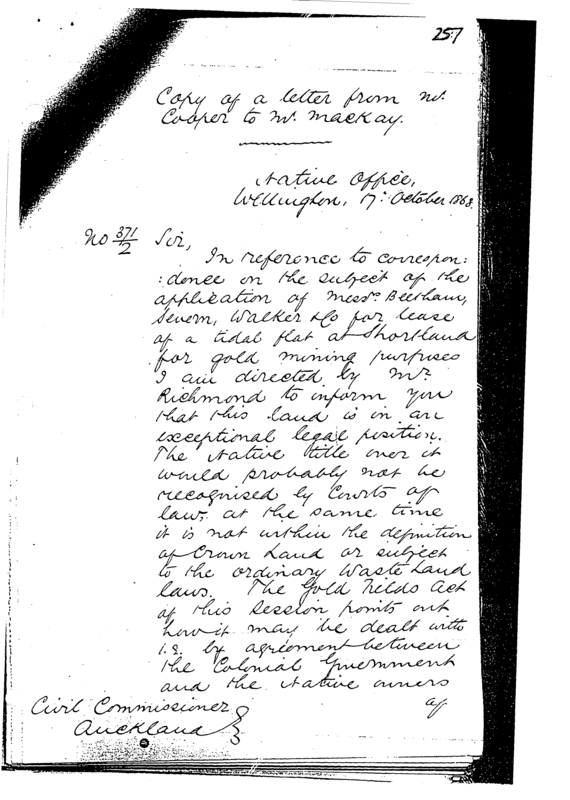 257
Copy of a letter from Mr.
Cooper to Mr. Mackay.
Native Office,
Wellington, 17: October 1868.
No 371/2 Sir,
In reference to correspon:
:dence on the subject of the
application of Messrs. Beetham,
Severn, Walker & Co for lease
of a tidal flat at Shortland
for gold mining purposes
I am directed by Mr.
Richmond to inform you
that this land is in an
exceptional legal position.
The Native title over it
would probably not be
recognised by Courts of
law, at the same time
it is not within the definition
of Crown Land or subject
to the ordinary Waste Land
laws. The Gold Fields Act
of this Session points out
how it may be dealt with
i.e. by agreement between
the Colonial Government
and the Native owners
of
Civil Commissioner
Auckland